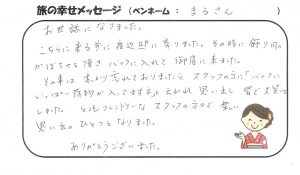 旅の幸せメッセージ（ペンネーム： まるさん ）
お世話になりました。
こちらに来る前に渡辺邸に寄りました。その時に飾り用の
かぼちゃを頂き バックに入れて御宿に来ました。
その事は すっかり忘れておりましたら スタッフの方に「バックに
いっぱい荷物が入ってますネ」と云われ 思い出し 皆で大笑いを
しました。 とてもフレンドリーな スタッフの方々で 楽しい
思い出の ひとつと なりました。
ありがとうございました。